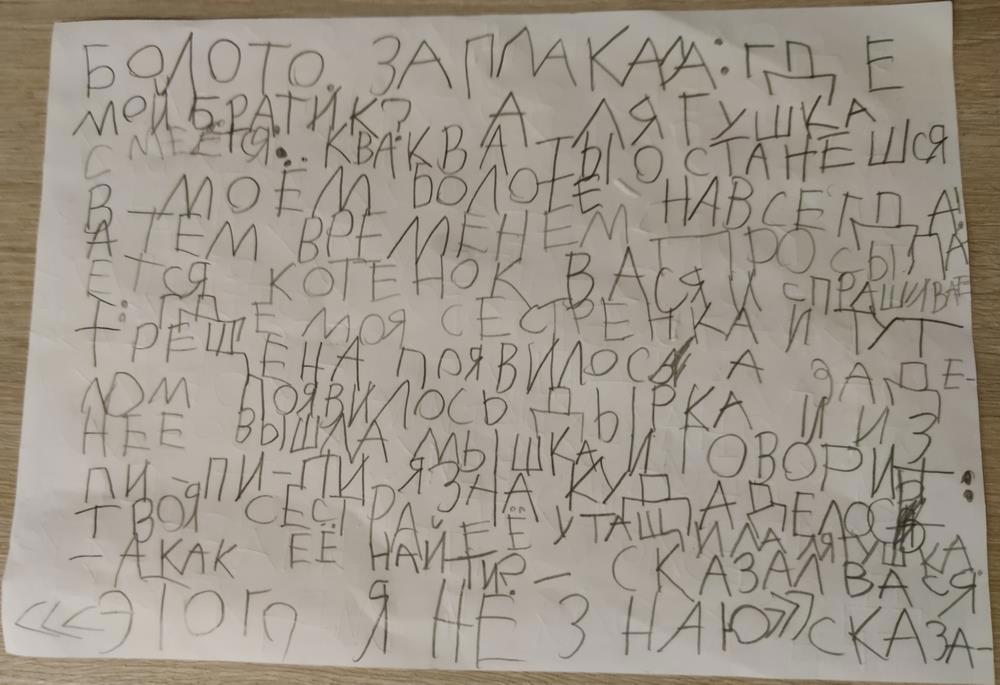 БОЛОТО. ЗАПЛАКАЛА: ГДЕ
МОЙ БРАТИК? А ЛЯГУШКА
СМЕЕТСЯ: КВАКВА ТЫ ОСТАНЕШСЯ
В МОЁМ БОЛОТЕ НАВСЕГДА!
А ТЕМ ВРЕМЕНЕМ ПРОСЫПА
ЕТСЯ КОТЕНОК ВАСЯ И СПРАШИВАЕ
Т: ГДЕ МОЯ СЕСТРЕНКА И ТУТ
ТРЕЩЕНА ПОЯВИЛОСЬ А ЗАДЕ-
ЛОМ ПОЯВИЛОСЬ ДЫРКА И ИЗ
НЕЕ ВЫШЛА МЫШКА И ГОВОРИТ:
ПИ-ПИ-ПИ Я ЗНА КУДА ДЕЛОСЬ
ТВОЯ СЕСТРА ЕЁ УТАЩИЛА ЛЯГУШКА.
-А КАК ЕЁ НАЙТИ?- СКАЗАЛ ВАСЯ.
<<ЭТОГО Я НЕ ЗНАЮ>> СКАЗА-